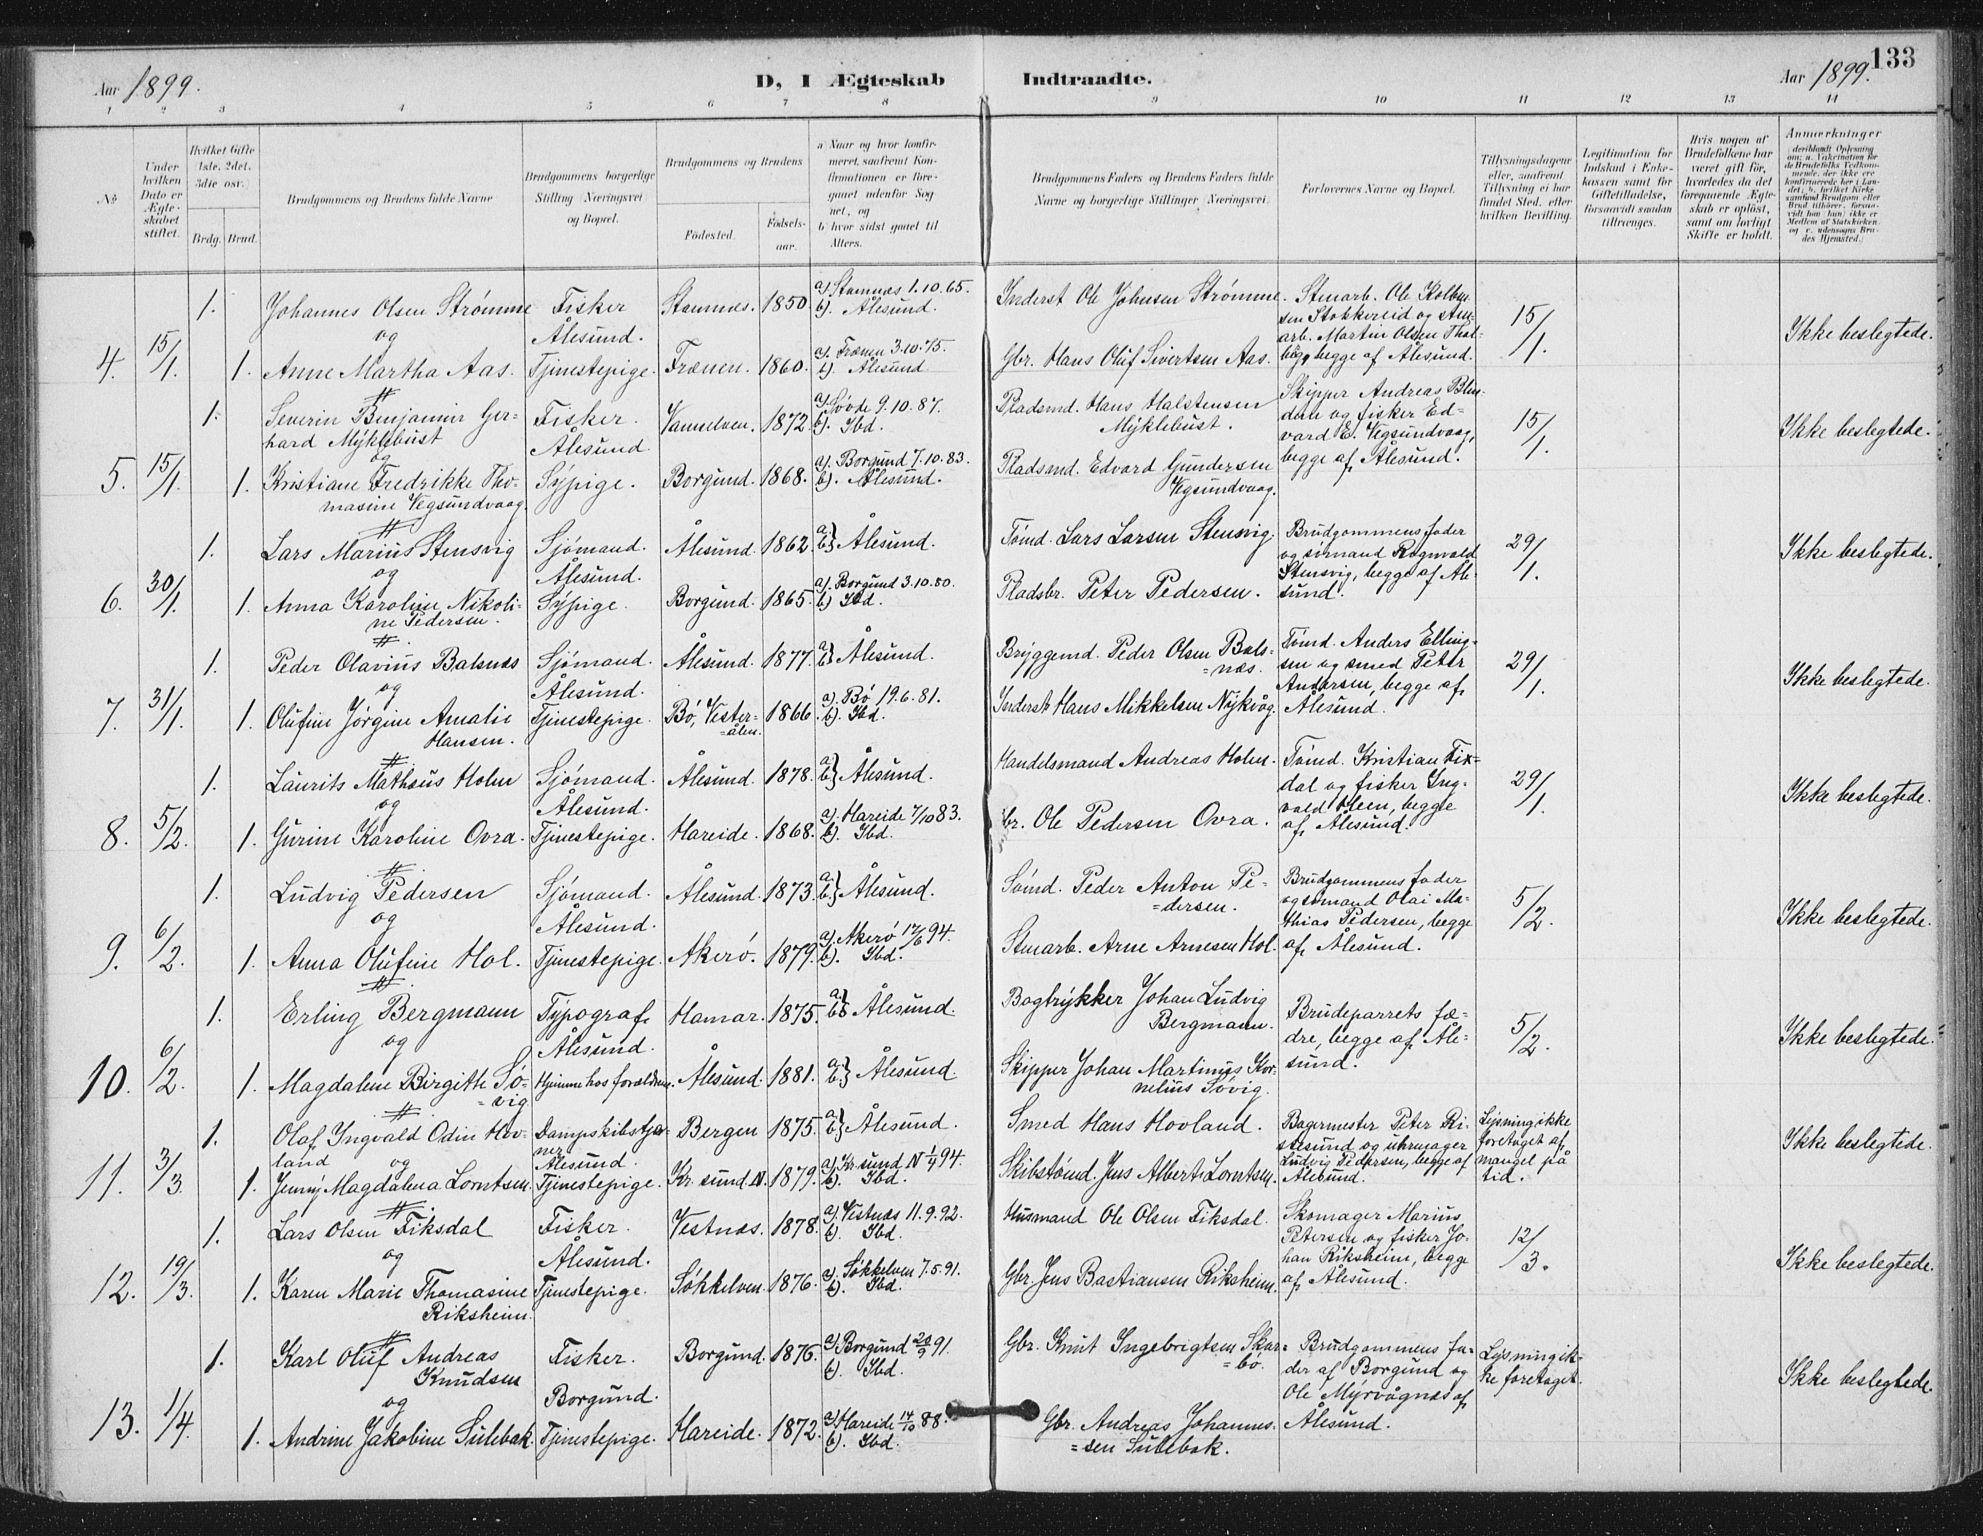 133
Aar 1899.
D, I Ægteskab Indtraadte.
Aar 1899.
1 2 3 4 5 6 7 8 9 10 11 12 13 14
No.
Under hvilken Dato er Ægteskabet stiftet.
Hvilket Gifte 1ste, 2det, 3die osv.
Brdg. Brud.
Brudgommens og Brudens fulde Navne
Brudgommens borgerlige Stilling Næringsvei og Bopæl.
Brudgommens og Brudens
Fødested. Fødselsaar.
a Naar og hvor konfirmeret, saafremt Konfirmationen er foregaaet udenfor Sognet, og
b hvor sidst gaaet til Alters.
Brudgommens Faders og Brudens Faders fulde Navne og borgerlige Stillinger (Næringsvei)
Forlovernes Navne og Bopæl.
Tillysningsdagene eller, saafremt Tillysning ei har fundet Sted, efter hvilken Bevilling.
Legitimation for Indskud i Enkekassen samt for Giftetilladelse, forsaavidt saadan tiltrænges.
Hvis nogen af Brudefolkene har været gift før, hvorledes da det foregaaende Ægteskab er opløst, samt om lovligt Skifte er holdt.
Anmærkninger
(deriblandt Oplysning om: a. Vakcination for de Brudefolks Vedkommende, der ikke ere konfirmerede her i Landet; b. hvilket Kirkesamfund Brudgom eller Brud tilhører, forsaavidt han (hun) ikke er Medlem af Statskirken, og c. udensogns Brudes Hjemsted.)
4. 15/1. 1. Johannes Olsen Strømme Fisker Ålesund. Stamnes. 1850. a). Stamnes 1.10.65. b). Ålesund. Inderst Ole Johnsen Strømme. Stenarb. Ole Kolbensen Stokkereid og Stenarb. Martin Olsen Tholberg, begge af Ålesund. 15/1. Ikke beslegtede.
og
1. Anne Martha Aas. Tjenestepige. Frænen. 1860. a). Frænen 3.10.75. b) Ålesund Gbr. Hans Oluf Sivertsen Aas.
5. 15/1. 1. Severin Benjamin Gerhard Myklebust Fisker. Ålesund Vannelven. 1872. a). Søvde 9.10.87. b). Ibd. Pladsmd. Hans Halstensen Myklebust. Skipper Andreas Blindem og fisker Edvard E. Vegsundvaag, begge af Ålesund. 15/1. Ikke beslegtede.
og
1. Kristiane Fredrikke Thomasine Vegsundvaag. Sypige. Borgund. 1868. a). Borgund 7.10.83. b). Ålesund. Pladsmd. Edvard Gundersen Vegsundvaag.
6. 30/1. 1. Lars Marius Stensvig Sjømand. Ålesund. Ålesund. 1862. a) b) Ålesund. Tømd. Lars Larsen Stensvig. Brudgommens fader og sømand Ragnvald Stensvig, begge af Ålesund. 29/1. Ikke beslegtede.
og
1. Anna Karoline Nikoline Pedersen. Sypige. Borgund. 1865. a). Borgund 3.10.80. b) Ibd. Pladsbr. Peter Pedersen.
7. 31/1. 1. Peder Olavius Balsnes Sjømand. Ålesund. Ålesund. 1877. a) b) Ålesund. Bryggemd. Peder Olsen Balsnæs. Tømd. Anders Ellingsen og smed Peter Andersen, begge af Ålesund. 29/1. Ikke beslegtede.
og
1. Olufine Jørgine Amalie Hansen. Tjenestepige. Bø, Vesterålen. 1866. a). Bø 19.6.81. b). Ibd. Inderst Hans Mikkelsen Nykvåg.
8. 5/2. 1. Laurits Mathæus Holm Sjømand. Ålesund. Ålesund. 1878. a) b) Ålesund. Handelsmand Andreas Holm. Tømd. Kristian Fixdal og fisker Ingvald Olsen, begge af Ålesund. 29/1. Ikke beslegtede.
og
1. Gurine Karoline Ovra. Tjenestepige. Hareide. 1868. a). Hareide 7/10 83. b). Ibd. Gbr. Ole Pedersen Ovra.
9. 6/2. 1. Ludvig Pedersen Sjømand. Ålesund. Ålesund. 1873. a) b) Ålesund. Sømd. Peder Anton Pedersen. Brudgommens fader og sømand Olai Mathias Pedersen, begge af Ålesund. 5/2. Ikke beslegtede.
og
1. Anna Olufine Hol. Tjenestepige. Akerø. 1879. a). Akerø 17/6 94. b). Ibd. Stenarb. Arne Arnesen Hol.
10. 6/2. 1. Erling Bergmann Typograf, Ålesund. Hamar. 1875. a) b) Ålesund. Bogtrykker Johan Ludvig Bergmann. Brudeparrets fædre, begge af Ålesund. 5/2. Ikke beslegtede.
og
1. Magdalene Birgitte Søvig. Hjemme hos forældrene. Ålesund. 1881. a) b) Ålesund. Skipper Johan Martinus Kornelius Søvig.
11. 3/3. 1. Olaf Yngvald Odin Hovland Dampskibstjener Ålesund. Bergen 1875. a) b) Ålesund. Smed Hans Hovland. Bagermester Peter Ristesund og uhrmager Ludvig Pedersen, begge af Ålesund. Lysning ikke foretaget af mangel på tid. Ikke beslegtede.
og
1. Jenny Magdalena Lorntsen. Tjenestepige. Kr.sund. N. 1879. a). Kr.sund N 94. b). Ibd. Skibstømd. Jens Albert Lorntsen.
12. 19/3. 1. Lars Olsen Fiksdal Fisker. Ålesund. Vestnæs. 1878. a). Vestnæs 11.9.92. b). Ibd. Husmand Ole Olsen Fiksdal. Skomager Marius Petersen og fisker Johan Riksheim, begge af Ålesund. 12/3. Ikke beslegtede.
og
1. Karen Marie Thomasine Riksheim. Tjenestepige. Søkkelven. 1876. a). Søkkelven 7.5.91. b). Ibd. Gbr. Jens Bastiansen Riksheim.
13. 1/4. 1. Karl Oluf Andreas Knudsen Fisker. Borgund. Borgund. 1876. a) Borgund 20/9 91. b). Ibd. Gbr. Knut Ingebrigtsen Skarbø. Brudgommens fader af Borgund og Ole Myrvågnes af Ålesund. Lysning ikke foretaget. Ikke beslegtede.
og
1. Andrine Jakobine Sulebak. Tjenestepige. Hareide. 1872. a) Hareide 14/10 88. b). Ibd. Gbr. Andreas Johannessen Sulebak.